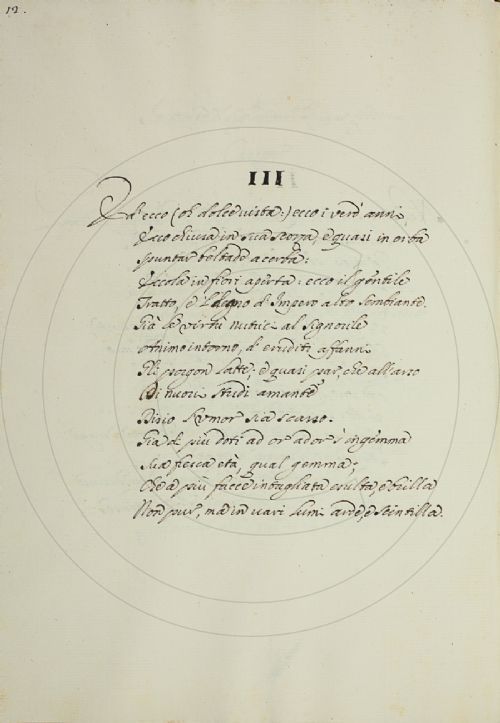 12.
III
Ed ecco (oh dolce vista!) ecco i verd' anni
Ecco chiusa in sua scorza, e quasi in erba
Spuntar beltade acerba:
Eccola in fiori aperta: ecco il gentile
Tratto, e degno d' Impero alto sembiante.
Già le virtù nutrici al signorile
Animo intorno, d' eruditi affanni
Gli porgon latte; e quasi par, che all'arso
Di nuovi studi amante
Divio sia scarso.
Già di più doti ad or ador s' ingemma
Sua fresca età, qual gemma;
Che a più facce intagliata esulta, e brilla
Non pur, ma in vari lumi arde, e scintilla.